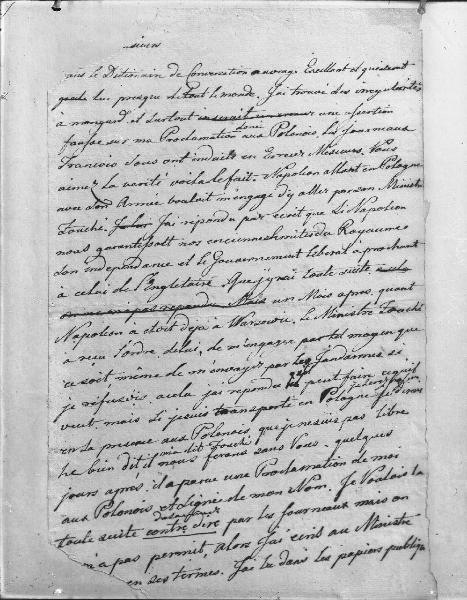 sieurs
dans le Dictionaire de Conversation ouvrage Excellant et qui étant
gouté lus presque de tout le monde. J'ai trouvé des irregularités
a mon egard et surtout une assertion
fausse sur ma Proclamation donné aux Polonois, les journaux
Francois vous ont induits en Erreur Messieurs. Vous
aimez la verité voila le fait. Napoleon allant en Pologne
avec son Armée voulait m'engager d'y aller par son Ministre
Fouché. J'ai repondu par ecrit que si Napoleon
nous garantissoit nos anciennes limites du Royaume
son independance et le Gouvernement liberal aprochant
à celui de l'Angleterre. Que j'yrai toute suite
Mais un Mois apres, quant
Napoleon à étoit deja a Warsovie, le Ministre Fouché
a reçu l'ordre de lui, de m'engager par tel moyen que
ce soit même de m'envoyer par les Jandarmes si
je refuserois, a cela jai repondu il peut faire ce qu'il
veut, mais si je suis transporté en Pologne je declarerai
en la presence aux Polonois que je ne suis pas libre
he bien dit, m'a dit Fouché il nous ferons sans Vous. quelques
jours apres, il a parue une Proclamation de moi
aux Polonois et signé de mon Nom. Je Voulais la
toute suite contre dire par les journaux mais on
m'a pas permit, alors J'ai ecris au Ministre
en ses termes. J'ai lu dans les papiers publiqu